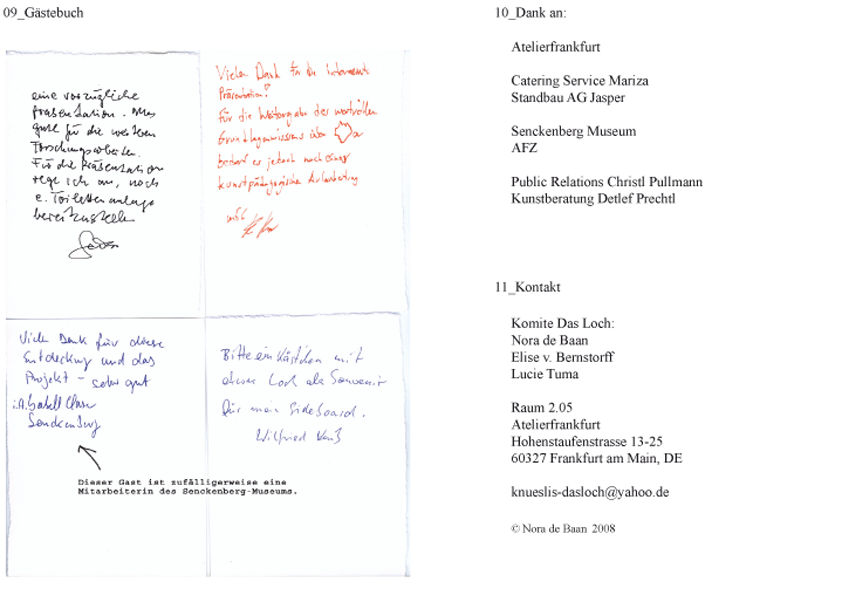 09_Gästebuch
eine vorzügliche
Präsentation. Alles
gute für die weiteren
Forschungsarbeiten.
Für die Präsentation
rege ich an, noch
e. Toilettenanlage
bereitzustellen
Vielen Dank für die interessante
Präsentation!
Für die Weitergabe des wertvollen
Grundlagenwissens über
bedarf es jedoch noch einer
kunstpädagogische Aufarbeitung
Viele Dank für diese
Entdeckung und das
Projekt – sehr gut
i.A. Isabell
Senckenberg
Bitte ein Kästchen mit
diesem Loch als Souvenir
für mein Sideboard.
Wilfried
Dieser Gast ist zufälligerweise eine
Mitarbeiterin des Senckenberg-Museums.
10_Dank an:
Atelierfrankfurt
Catering Service Mariza
Standbau AG Jasper
Senckenberg Museum
AFZ
Public Relations Christl Pullmann
Kunstberatung Detlef Prechtl
11_Kontakt
Komite Das Loch:
Nora de Baan
Elise v. Bernstorff
Lucie Tuma
Raum 2.05
Atelierfrankfurt
Hohenstaufenstrasse 13-25
60327 Frankfurt am Main, DE
knueslis-dasloch@yahoo.de
© Nora de Baan 2008